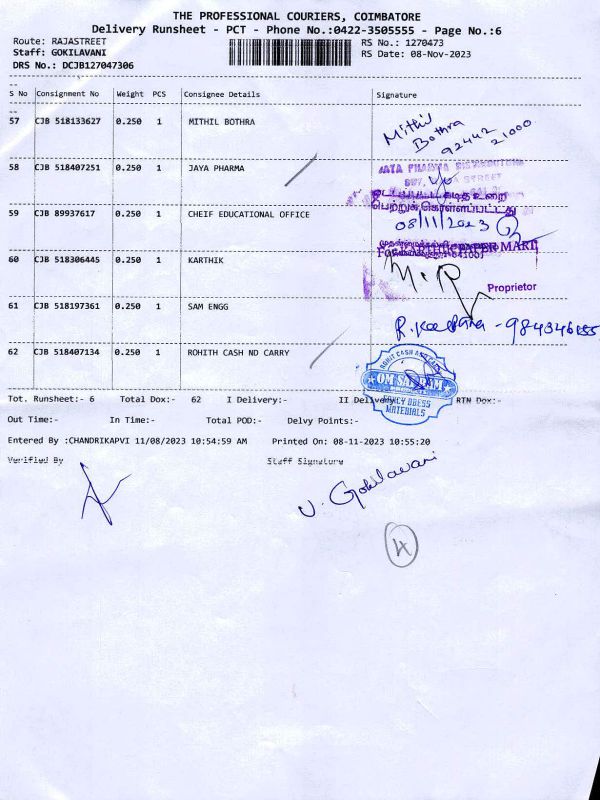 THE PROFESSIONAL COURIERS, COIMBATORE
Delivery Runsheet - PCT - Phone No.:0422-3505555 - Page No.:6
Route: RAJASTREET RS No.: 1270473
Staff: GOKILAVANI RS Date: 08-Nov-2023
DRS No.: DCJB127047306
S No Consignment No Weight PCS Consignee Details Signature
57 CJB 518133627 0.250 1 MITHIL BOTHRA
Mithil
Bothra
92442
21000
58 CJB 518407251 0.250 1 JAYA PHARMA
JAYA PHARMA DISTRIBUTORS
STREET
உறை
பெற்றுக்கொள்ளப்பட்டது
59 CJB 89937617 0.250 1 CHEIF EDUCATIONAL OFFICE
08/11/2023
PAPER MART
60 CJB 518306445 0.250 1 KARTHIK
Proprietor
61 CJB 518197361 0.250 1 SAM ENGG
62 CJB 518407134 0.250 1 ROHITH CASH ND CARRY
ROHIT CASH AND CARRY
FANCY DRESS
MATERIALS
Tot. Runsheet:- 6 Total Dox:- 62 I Delivery:- II Delivery:- RTN Dox:-
Out Time:- In Time:- Total POD:- Delvy Points:-
Entered By :CHANDRIKAPVI 11/08/2023 10:54:59 AM Printed On: 08-11-2023 10:55:20
Verified By Staff Signature
V. Gokilavani